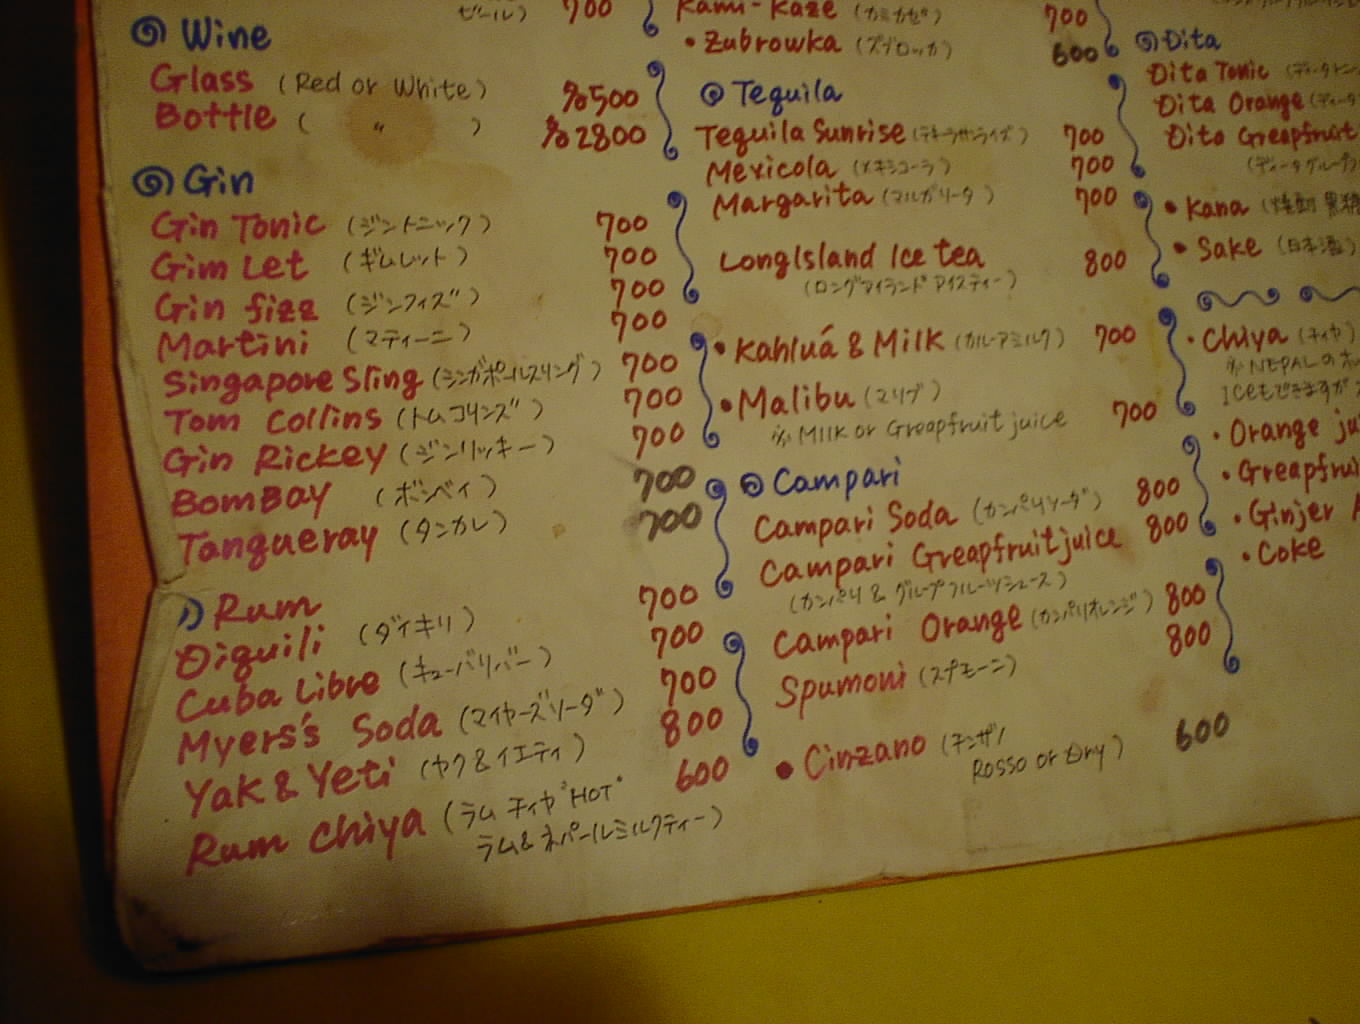 ビール) 700
Wine
Glass (Red or White) 500
Bottle ( 〃 ) 2800
Gin
Gin Tonic (ジントニック) 700
Gim Let (ギムレット) 700
Gin fizz (ジンフィズ) 700
Martini (マティーニ) 700
Singapore Sling (シンガポールスリング) 700
Tom Collins (トムコリンズ) 700
Gin Rickey (ジンリッキー) 700
BomBay (ボンベイ) 700
Tangueray (タンカレ) 700
Rum
Diguili (ダイキリ) 700
Cuba Libre (キューバリバー) 700
Myers's Soda (マイヤーズソーダ) 700
Yak & Yeti (ヤク&イエティ) 800
Rum Chiya (ラム チィヤ "HOT" 600
ラム&ネパールミルクティー)
Kami-Kaze (カミカゼ) 700
• Zubrowka (ズブロッカ) 600
Tequila
Tequila Sunrise (テキーラサンライズ) 700
Mexicola (メキシコーラ) 700
Margarita (マルガリータ) 700
LongIsland Ice tea 800
(ロングアイランド アイスティー)
• Kahluá & Milk (カルーアミルク) 700
• Malibu (マリブ)
※ Milk or Greapfruit juice 700
Campari
Campari Soda (カンパリソーダ) 800
Campari Greapfruit juice 800
(カンパリ & グループフルーツジュース)
Campari Orange (カンパリオレンジ) 800
Spumoni (スプモーニ) 800
• Cinzano (チンザノ 600
Rosso or Dry)
Dita
Dita Tonic (ディータトニ
Dita Orange (ディータ
Dita Greapfruit
(ディータグループ
• Kana (焼酎 黒糖
• Sake (日本酒)
• Chiya (チィヤ)
※ NEPALの
Iceもできますが
• Orange ju
• Greapfrui
• Ginjer A
• Coke